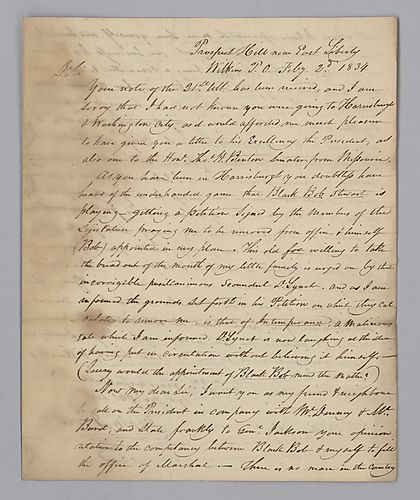 Prospect Hill near East Liberty
Wilkins P.O. Feby. 2d. 1834
Dr. Sir
Your note of the 21st. Ult. has been received, and I am
sorry that I had not known you were going to Harrisburgh
& Washington City, as it would afforded me much pleasure
to have given you a letter to his Excellency the President, as
also one to the Honl. Thos. H. Benton Senator from Missouri.
As you have been in Harrisburgh you doubtless have
heard of the underhanded game that Black Bob Stewart is
playing — getting a Petition signed by the Members of the
Legislature praying me to be removed from office & himself
(Bob) appointed in my place. This old fox willing to take
the bread out of the mouth of my little family is urged on by that
incorrigible pusillanimous Scoundrel D. Lynch, and as I am
informed the grounds set forth in his Petition on which they cal-
culate to remove me, is that of Intemperance, a malicious
tale which I am informed, D. Lynch is now laughing at the idea
of having put in circulation without believing it himself —
(Query would the appointment of Black Bob mend the matter)
Now my dear Sir, I want you as my friend & neighbour
to call on the President in company with Mr. Denny & Mr.
Burd, and State frankly to Genl. Jackson your opinion
relative to the competancy between Black Bob & myself to fill
the office of Marshal — There is no man in the Country